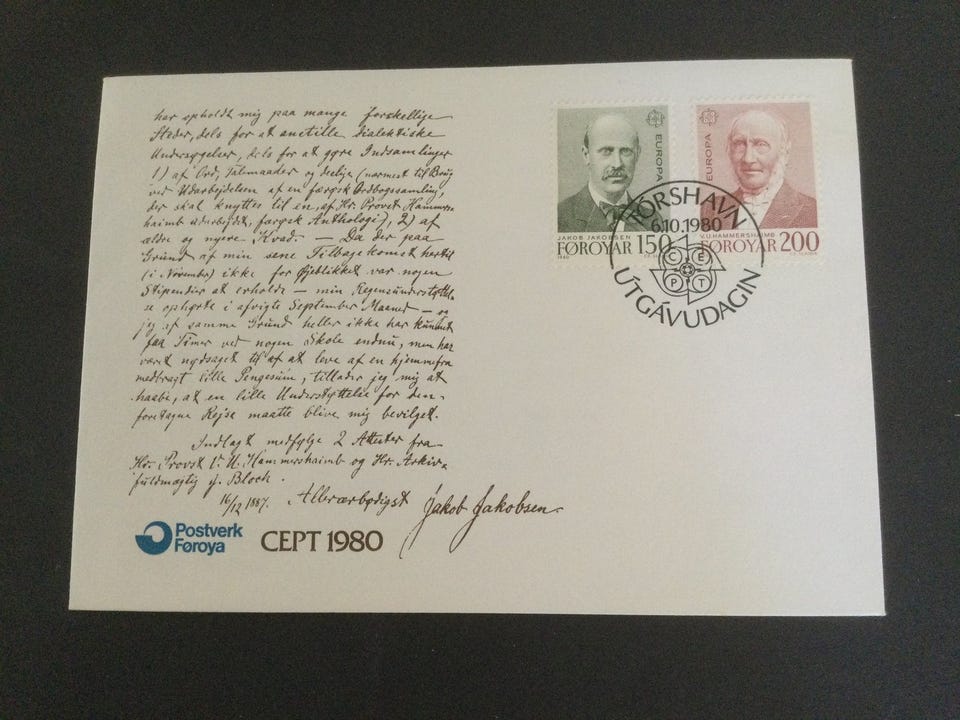 har opholdt mig paa mange forskellige
Steder, dels for at anstille dialektiske
Undersøgelser, dels for at gøre Indsamlinger
1) af Ord, Talemaader og deslige (nærmest til Brug
ved Udarbejdelsen af en færøsk Ordbogssamling,
der skal knyttes til en, af Hr. Provst Hammers-
haimb udarbejdet, færøsk Anthologi), 2) af
ældre og nyere Kvad. — Da der paa
Grund af min sene Tilbagekomst hertil
(i November) ikke for Øjeblikket var nogen
Stipendier at erholde — min Regensunderstøttel-
se ophørte i afvigte September Maaned — og
jeg af samme Grund heller ikke har kunnet
faa Timer ved nogen Skole endnu, men har
været nødsaget til at leve af en hjemmefra
medbragt lille Pengesum, tillader jeg mig at
haabe, at en lille Understøttelse for den
foretagne Rejse maatte blive mig bevilget.
Indlagt medfølge 2 Attester fra
Hr. Provst V. U. Hammershaimb og Hr. Arkiv-
fuldmægtig J. Bloch.
16/12 1887. Allerærbødigst Jakob Jakobsen
Postverk
Føroya
CEPT 1980
EUROPA
JAKOB JAKOBSEN
FØROYAR 150
1980
EUROPA
V.U. HAMMERSHAIMB
FØROYAR 200
TÓRSHAVN
6.10.1980
CEPT
ÚTGÁVUDAGIN